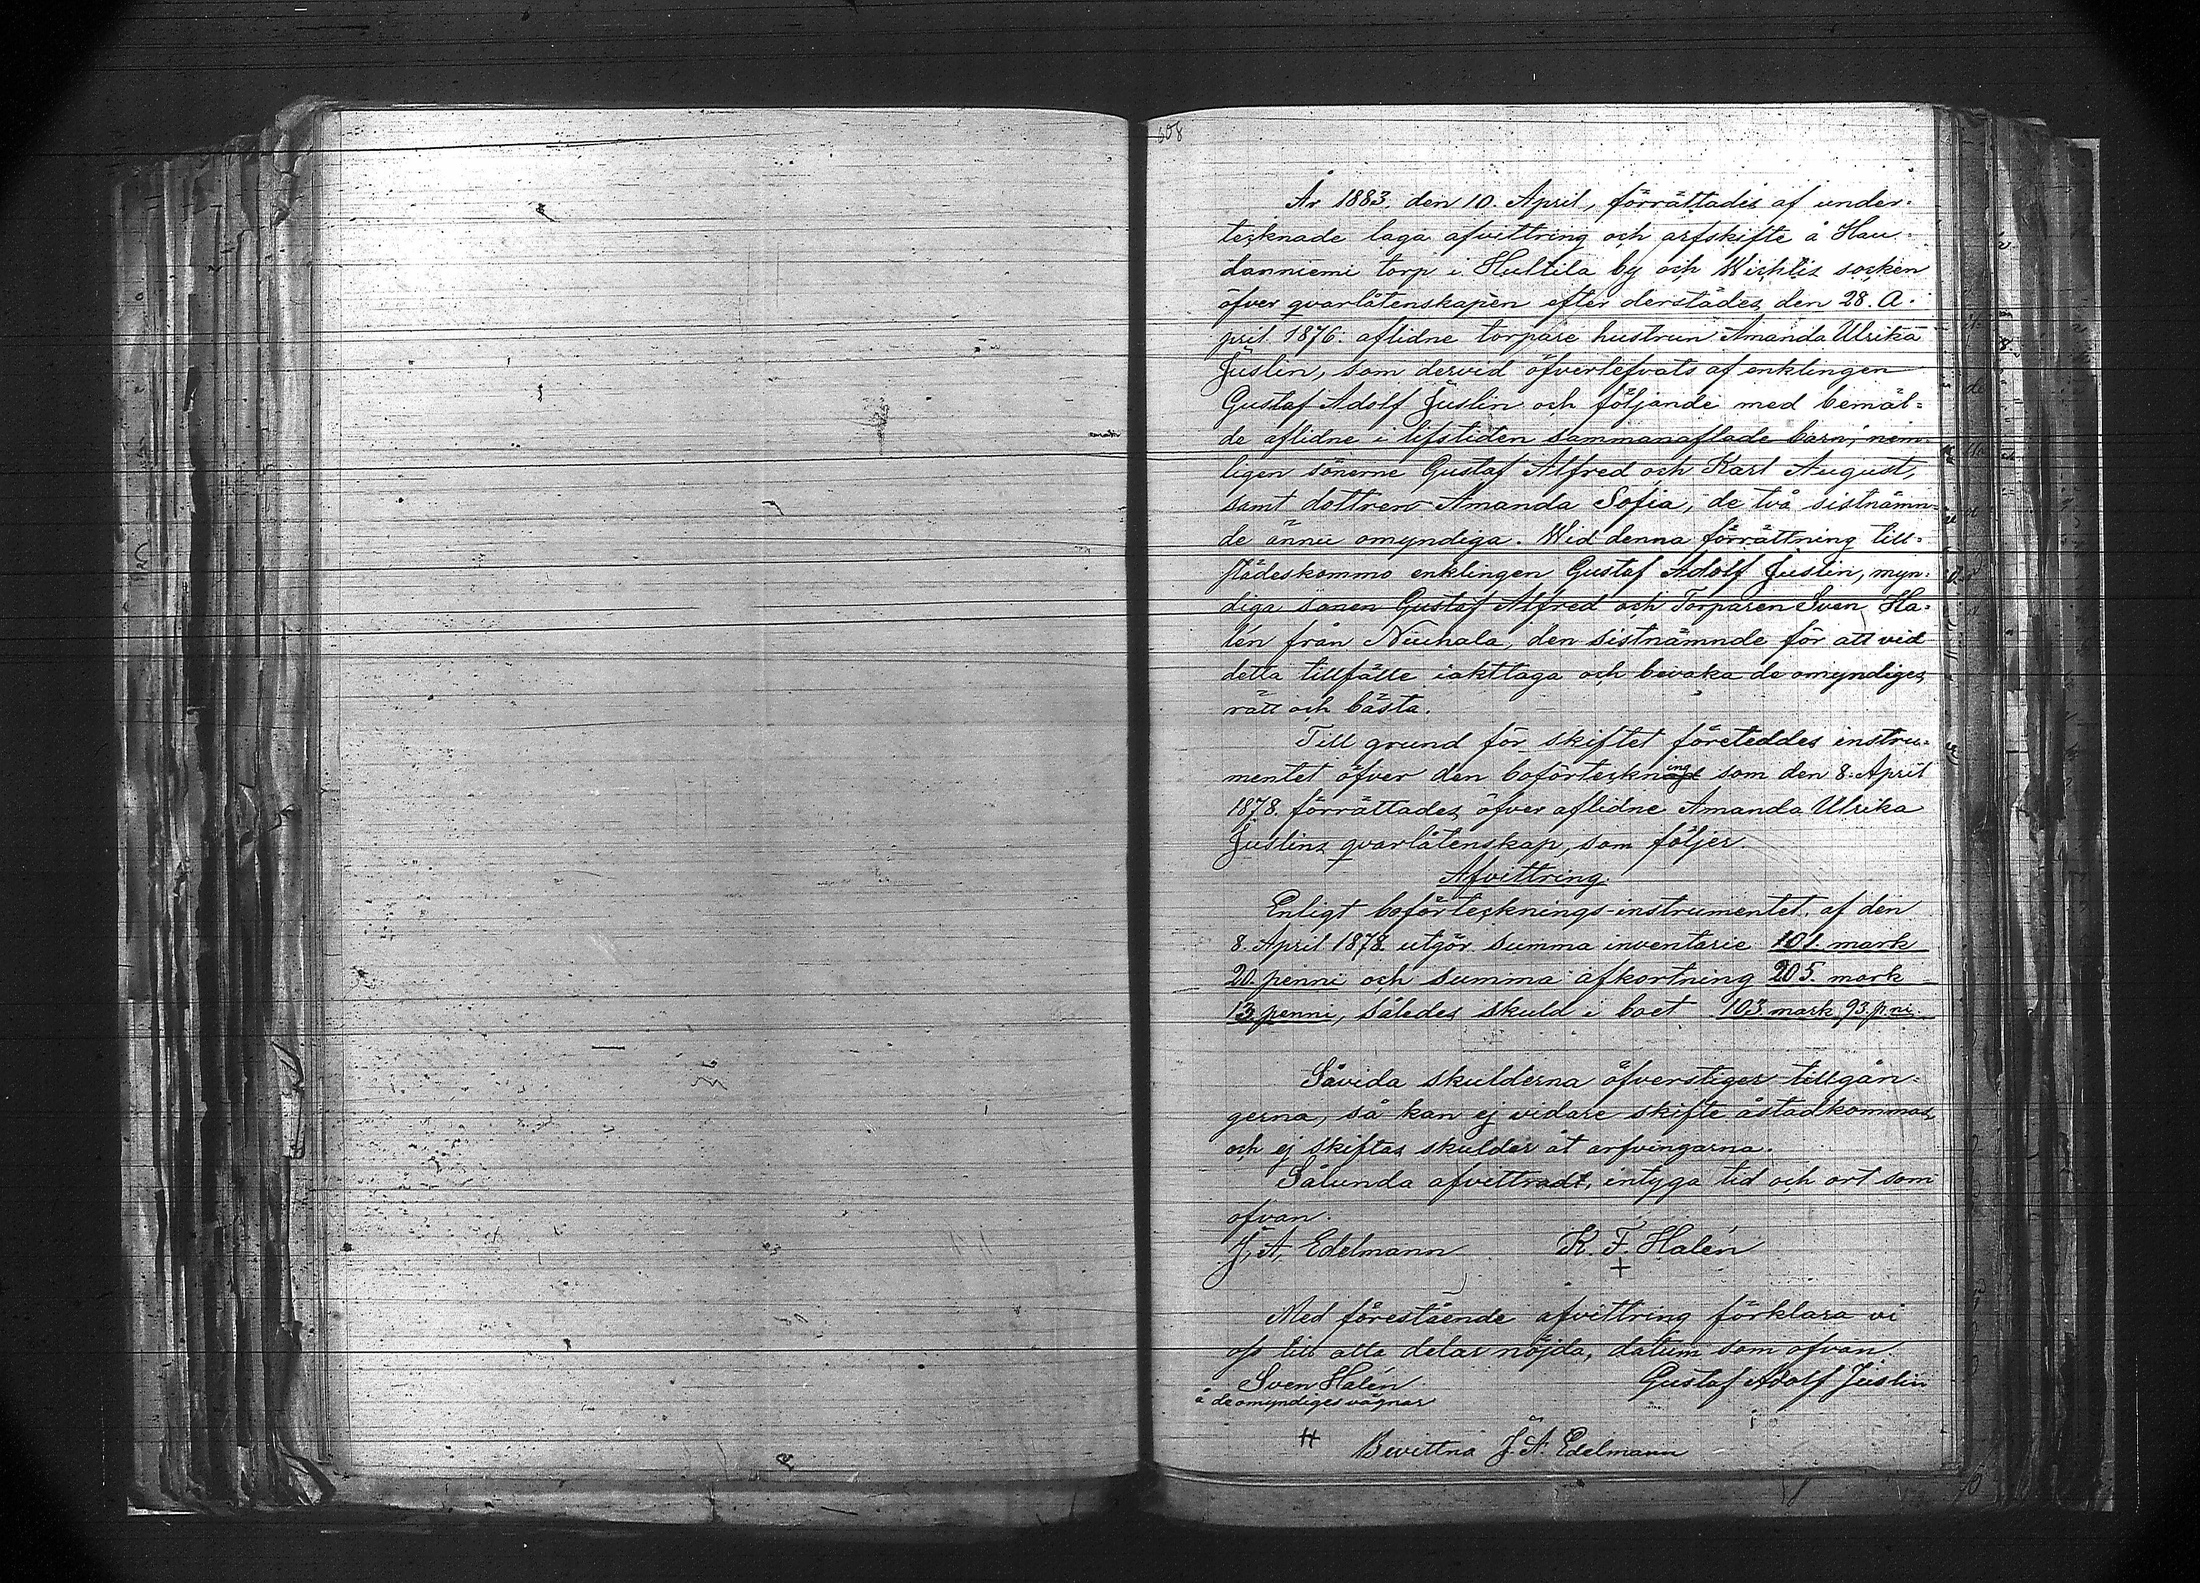 508
År 1883. den 10. April, förrättades af under-
tecknade laga afvittring och arfskifte å Hau-
danniemi torp i Hultila by och Wichtis socken
öfver qvarlåtenskapen efter derstädes, den 28. A-
pril 1876. aflidne torpare hustrun Amanda Ulrika
Juslin, som dervid öfverlefvats af enklingen
Gustaf Adolf Juslin och följande med bemäl=
de aflidne i lifstiden sammanaflade barn, nem-
ligen sönerne Gustaf Alfred och Karl August,
samt dottren Amanda Sofia, de två sistnämn-
de ännu omyndiga. Wid denna förrättning till=
städeskommo enklingen Gustaf Adolf Juslin, myn-
diga sonen Gustaf Alfred och Torparen Sven Ha-
lén från Niuhala, den sistnämnde för att vid
detta tillfälle iakttaga och bevaka de omyndiges
rätt och bästa.
Till grund för skiftet företeddes instru-
mentet öfver den boförteckning som den 8. April
1878. förrättades öfver aflidne Amanda Ulrika
Juslins qvarlåtenskap, som följer.
Afvittring.
Enligt boförtecknings-instrumentet, af den
8. April 1878 utgör summa inventarie 101. mark
20. penni och summa afkortning 205. mark
13 penni, således skuld i boet 103 mark 93. p:ni.
Såvida skulderna öfverstiger tillgån-
gerna, så kan ej vidare skifte åstadkommas,
och ej skiftas skulder åt arfvingarna.
Sålunda afvittradt, intyga tid och ort som
ofvan.
J. A. Edelmann K. F. Halén
+
Med förestående afvittring förklara vi
oss till alla delar nöjda, datum som ofvan
Sven Halén Gustaf Adolf Juslin
å de omyndiges vägnar
Bevittna J. A. Edelmann